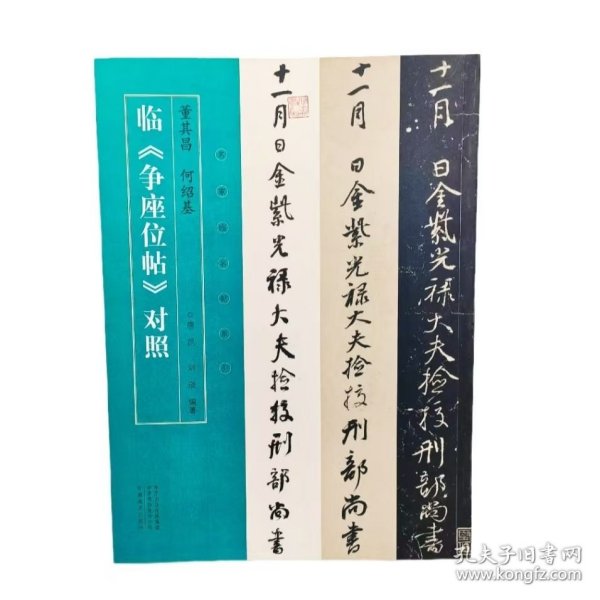 十一月 日金紫光禄大夫捡挍刑部尚书
十一月 日金紫光禄大夫捡挍刑部尚书
十一月日金紫光禄大夫捡挍刑部尚书
董其昌 何绍基
临《争座位帖》对照
编著
孔夫子旧书网
www.kongfz.com